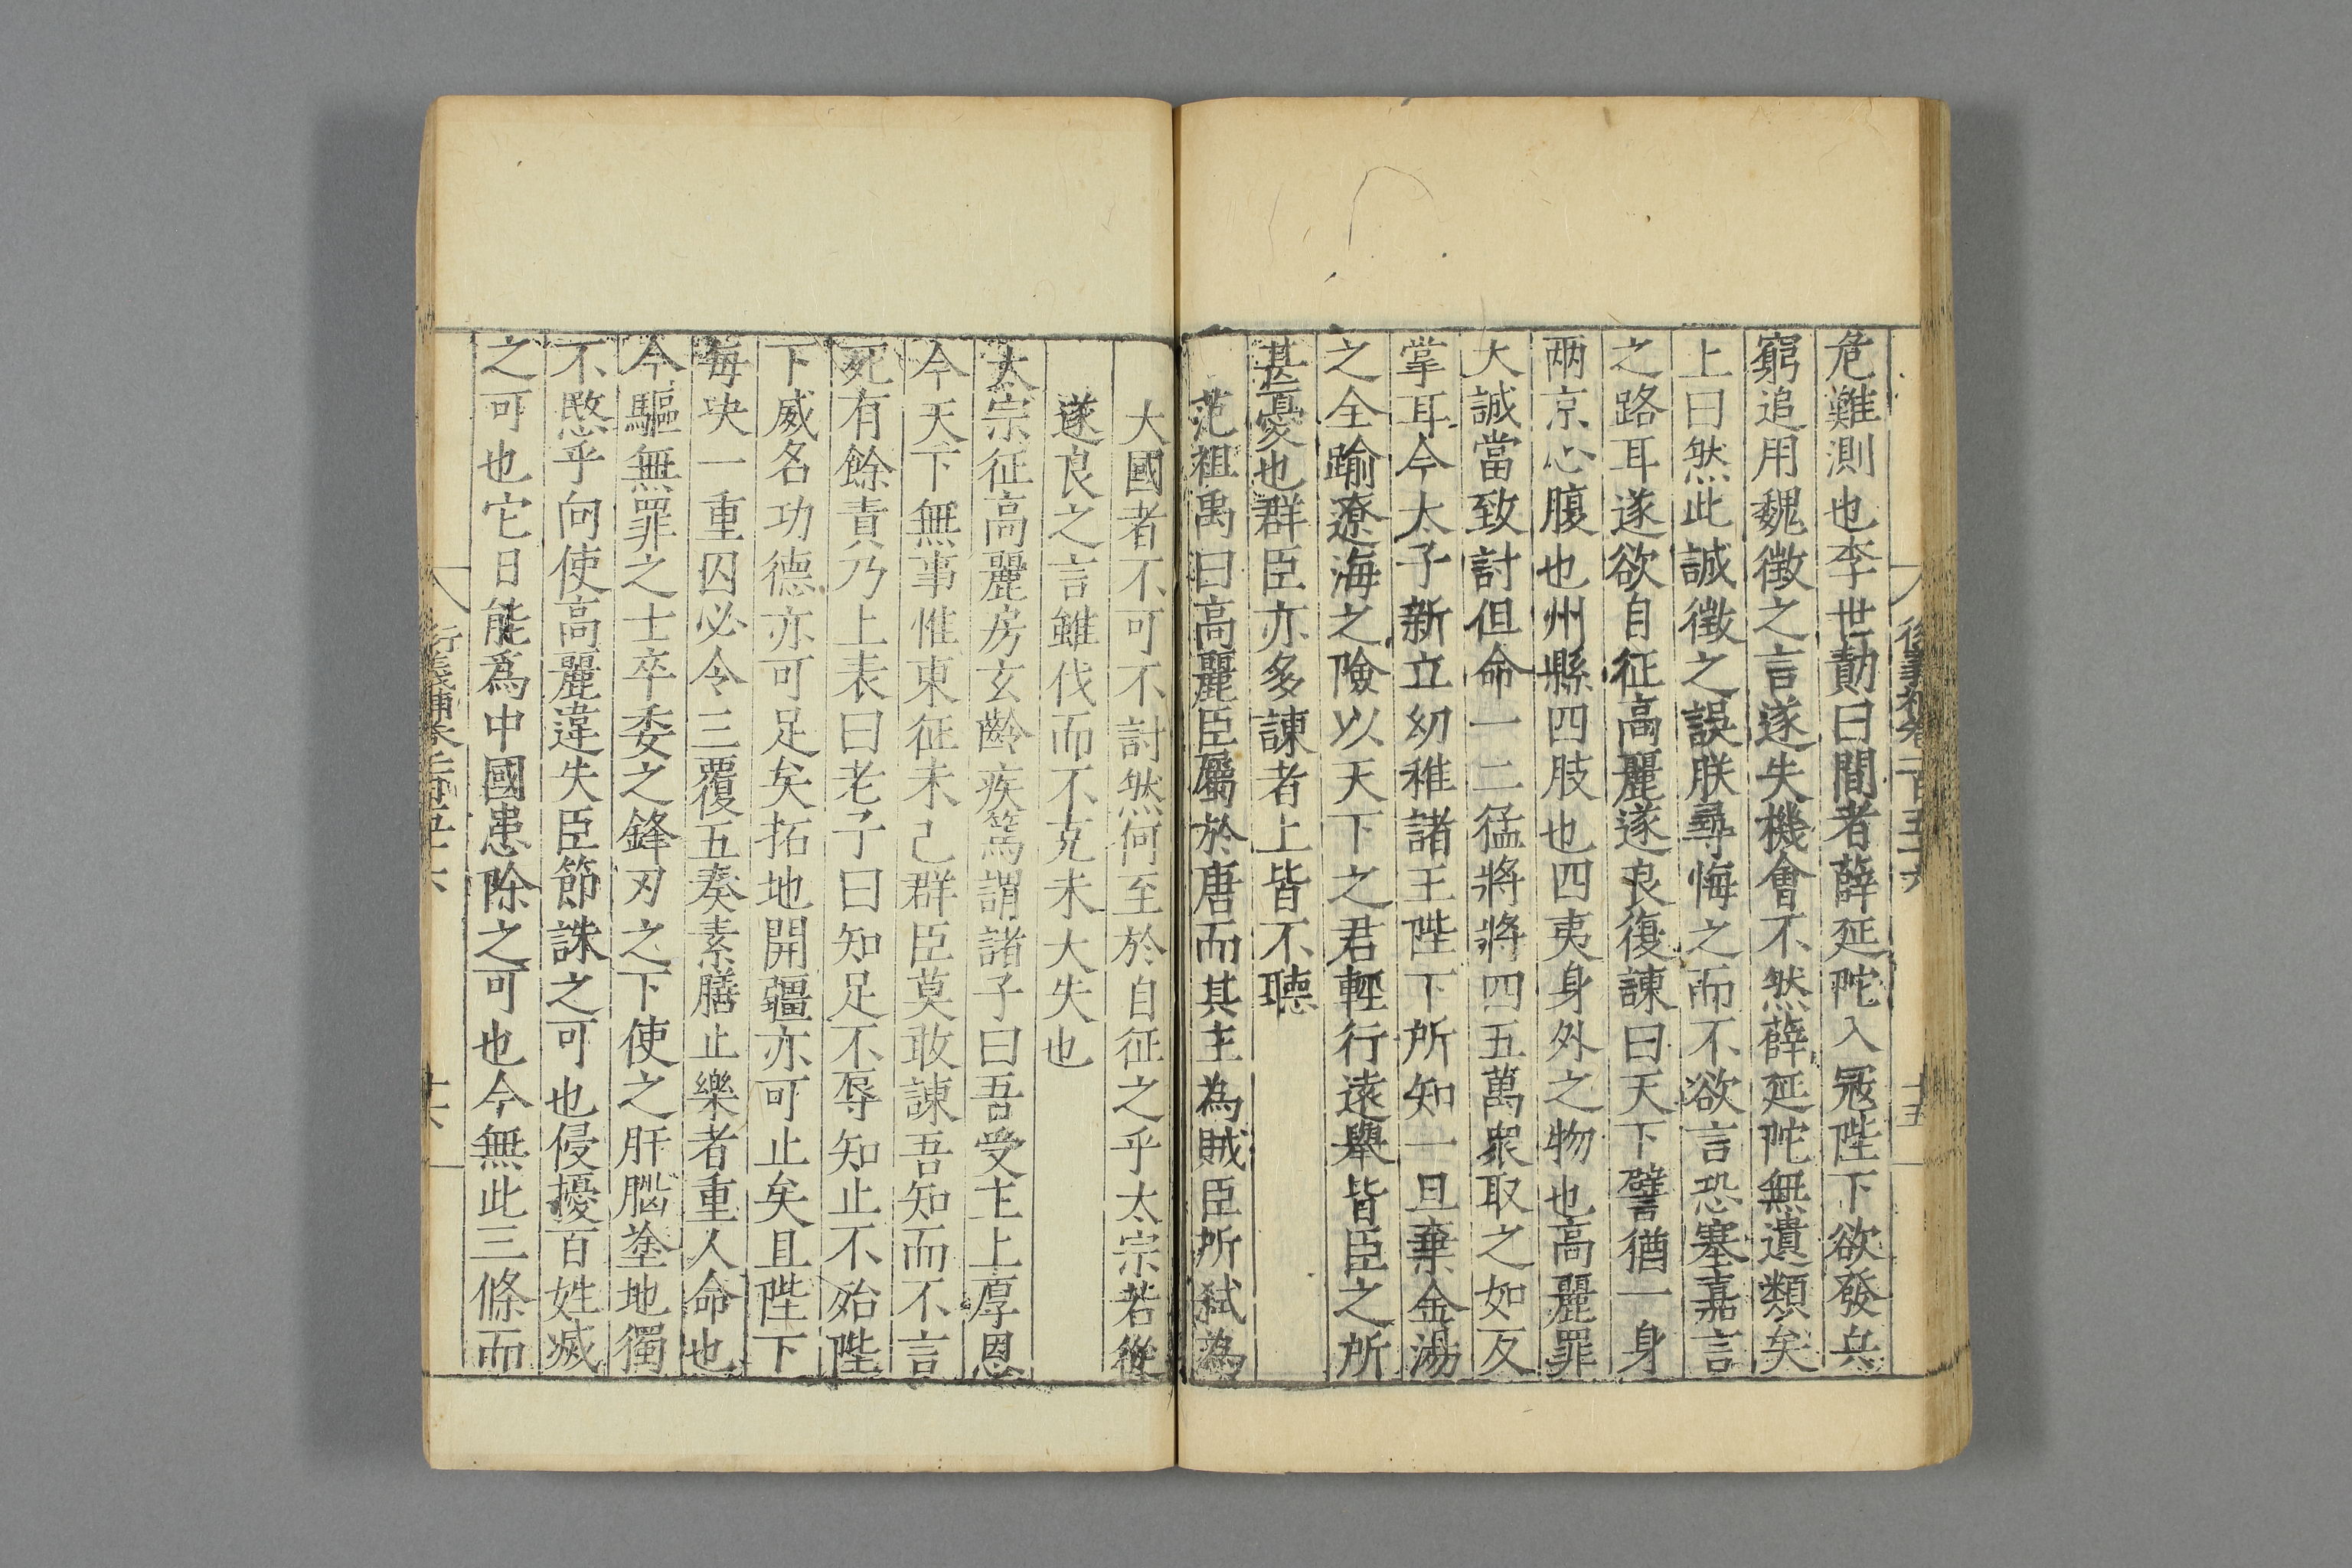 危難測也李世勣曰間者薛延陀入冦陛下欲發兵
窮追用魏徴之言遂失機會不然薛延陀無遺類矣
上曰然此誠徴之誤朕尋悔之而不欲言恐塞嘉言
之路耳遂欲自征高麗遂良復諫曰天下譬猶一身
兩京心腹也州縣四肢也四夷身外之物也高麗罪
大誠當致討但命一二猛將將四五萬衆取之如反
掌耳今太子新立幼稚諸王陛下所知一旦棄金湯
之全踰遼海之險以天下之君輕行遠舉皆臣之所
甚憂也群臣亦多諫者上皆不聽
范祖禹曰高麗臣屬於唐而其主為賊臣所弑為
大國者不可不討然何至於自征之乎太宗若從
遂良之言雖伐而不克未大失也
太宗征高麗房玄齡疾篤謂諸子曰吾受主上厚恩
今天下無事惟東征未己群臣莫敢諫吾知而不言
死有餘責乃上表曰老子曰知足不辱知止不殆陛
下威名功德亦可足矣拓地開疆亦可止矣且陛下
每决一重囚必令三覆五奏素膳止樂者重人命也
今驅無罪之士卒委之鋒刃之下使之肝脳塗地獨
不愍乎向使高麗違失臣節誅之可也侵擾百姓滅
之可也它日能爲中國患除之可也今無此三條而
衍義補卷一百五十六
十六